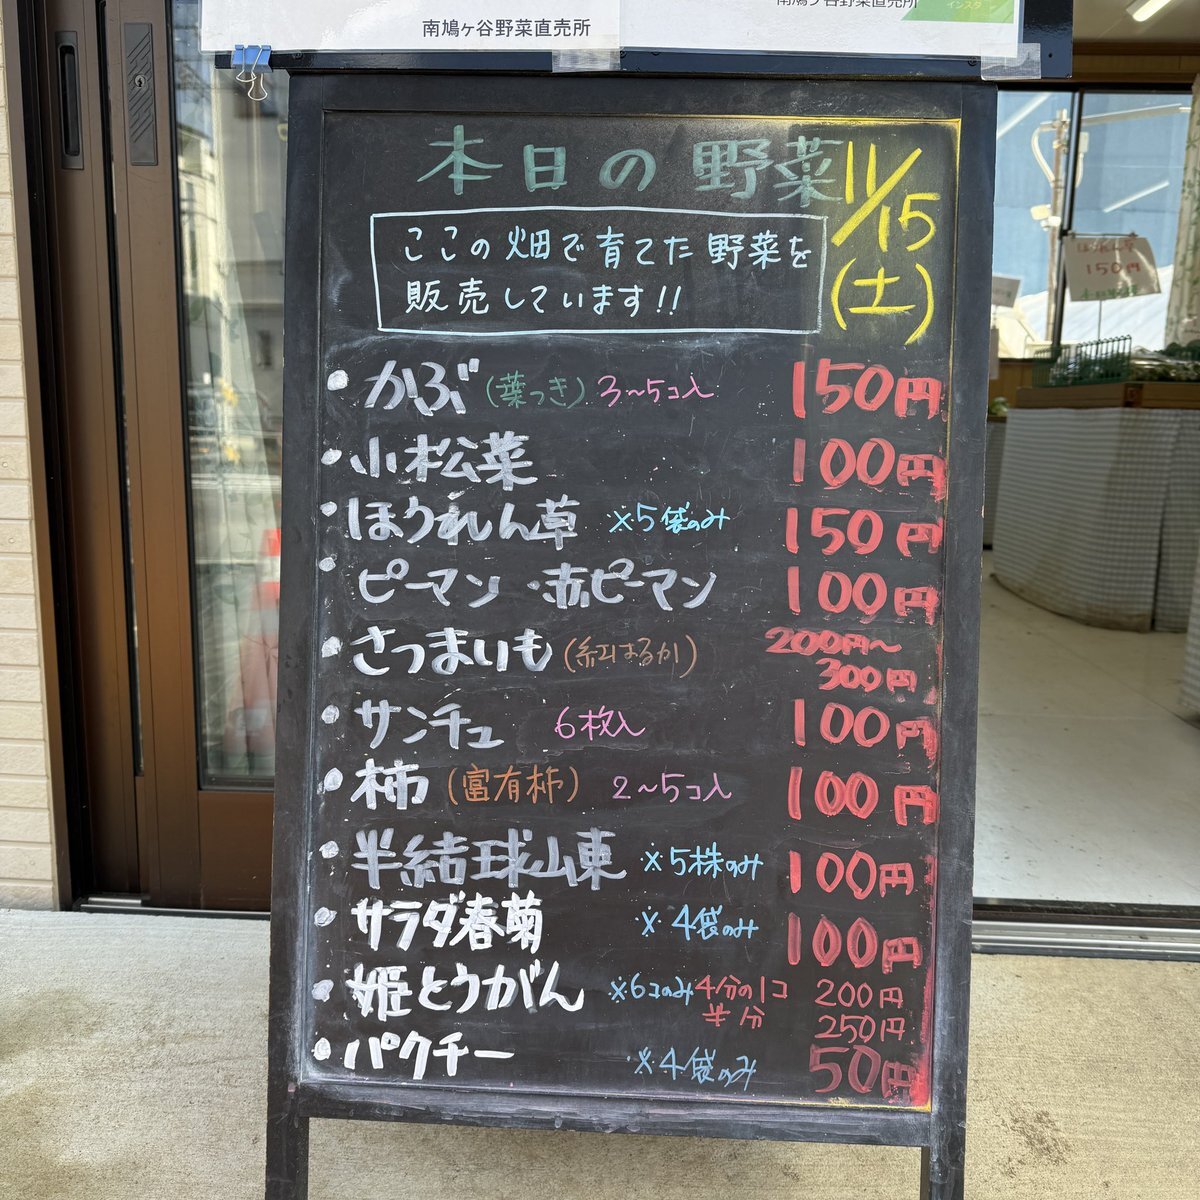 南鳩ヶ谷野菜直売所
南鳩ヶ谷野菜直売所
インスタ
本日の野菜 11/15(土)
ここの畑で育てた野菜を
販売しています!!
・かぶ(葉つき) 3〜5コ入 150円
・小松菜 100円
・ほうれん草 ※5袋のみ 150円
・ピーマン・赤ピーマン 100円
・さつまいも(紅はるか) 200円〜
300円
・サンチュ 6枚入 100円
・柿(富有柿) 2〜5コ入 100円
・半結球山東 ※5株のみ 100円
・サラダ春菊 ※4袋のみ 100円
・姫とうがん ※6コのみ 4分の1コ 200円
半分 250円
・パクチー ※4袋のみ 50円
ほうれん草
150円